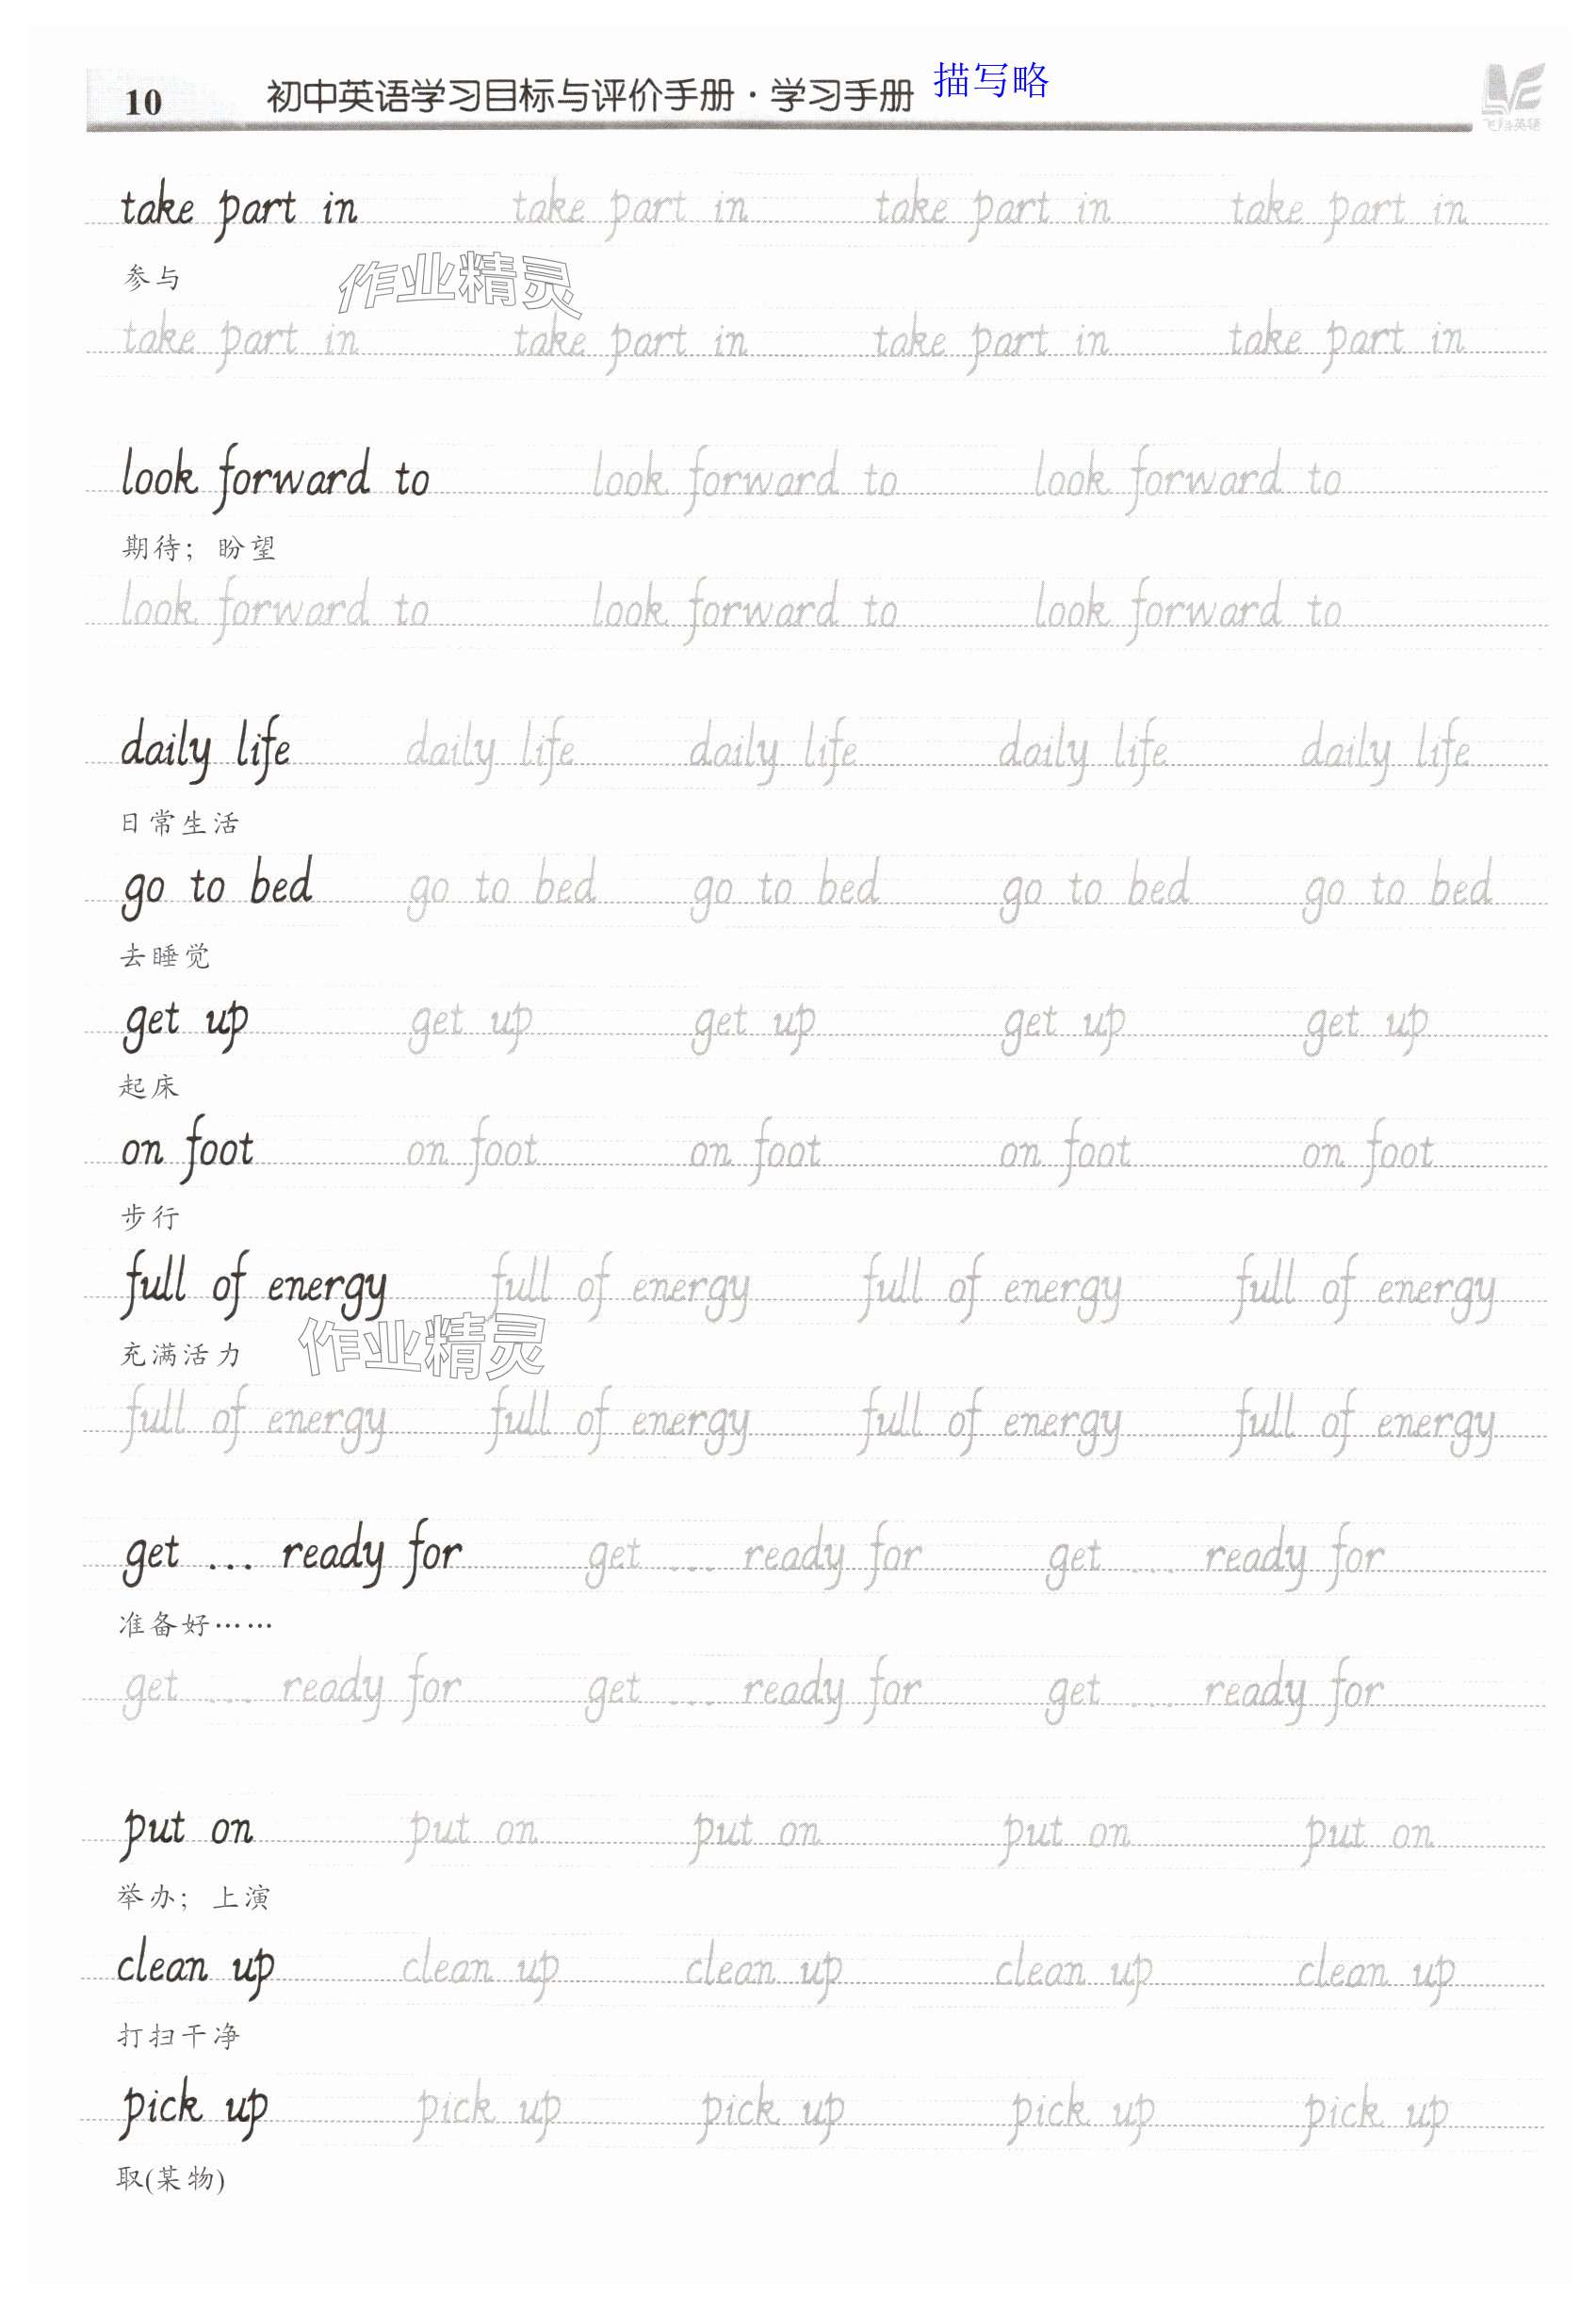 10 初中英语学习目标与评价手册·学习手册 描写略
飞越英语
take part in take part in take part in take part in
参与
作业精灵
take part in take part in take part in take part in
look forward to look forward to look forward to
期待；盼望
look forward to look forward to look forward to
daily life daily life daily life daily life daily life
日常生活
go to bed go to bed go to bed go to bed go to bed
去睡觉
get up get up get up get up get up
起床
on foot on foot on foot on foot on foot
步行
full of energy full of energy full of energy full of energy
充满活力
作业精灵
full of energy full of energy full of energy full of energy
get ... ready for get ... ready for get ... ready for
准备好……
get ... ready for get ... ready for get ... ready for
put on put on put on put on put on
举办；上演
clean up clean up clean up clean up clean up
打扫干净
pick up pick up pick up pick up pick up
取(某物)